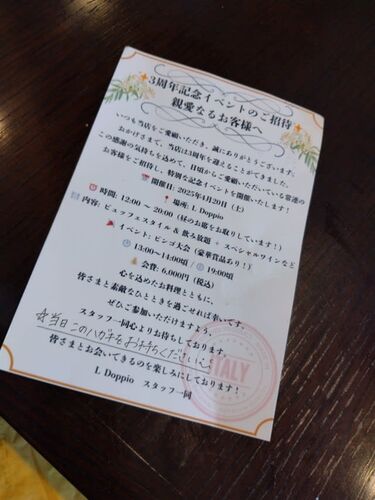 3周年記念イベントのご招待
親愛なるお客様へ
いつも当店をご愛顧いただき、誠にありがとうございます。
おかげさまで、当店は3周年を迎えることができました。
この感謝の気持ちを込めて、日頃からご愛顧いただいている常連の
お客様をご招待し、特別な記念イベントを開催いたします!
開催日: 2025年4月20日(土)
場所: I. Doppio
時間: 12:00 ~ 20:00 (昼のお席をお取りしています!)
内容: ビュッフェスタイル & 飲み放題 + スペシャルワインなど
イベント: ビンゴ大会 (豪華賞品あり!)
13:00~14:00頃 / 19:00頃
会費: 6,000円 (税込)
心を込めたお料理とともに、
皆さまと素敵なひとときを過ごせれば幸いです。
ぜひご参加いただけますよう、
スタッフ一同心よりお待ちしております。
☆当日このハガキをお持ちくださいね
皆さまとお会いできるのを楽しみにしております!
I. Doppio スタッフ一同
ITALY